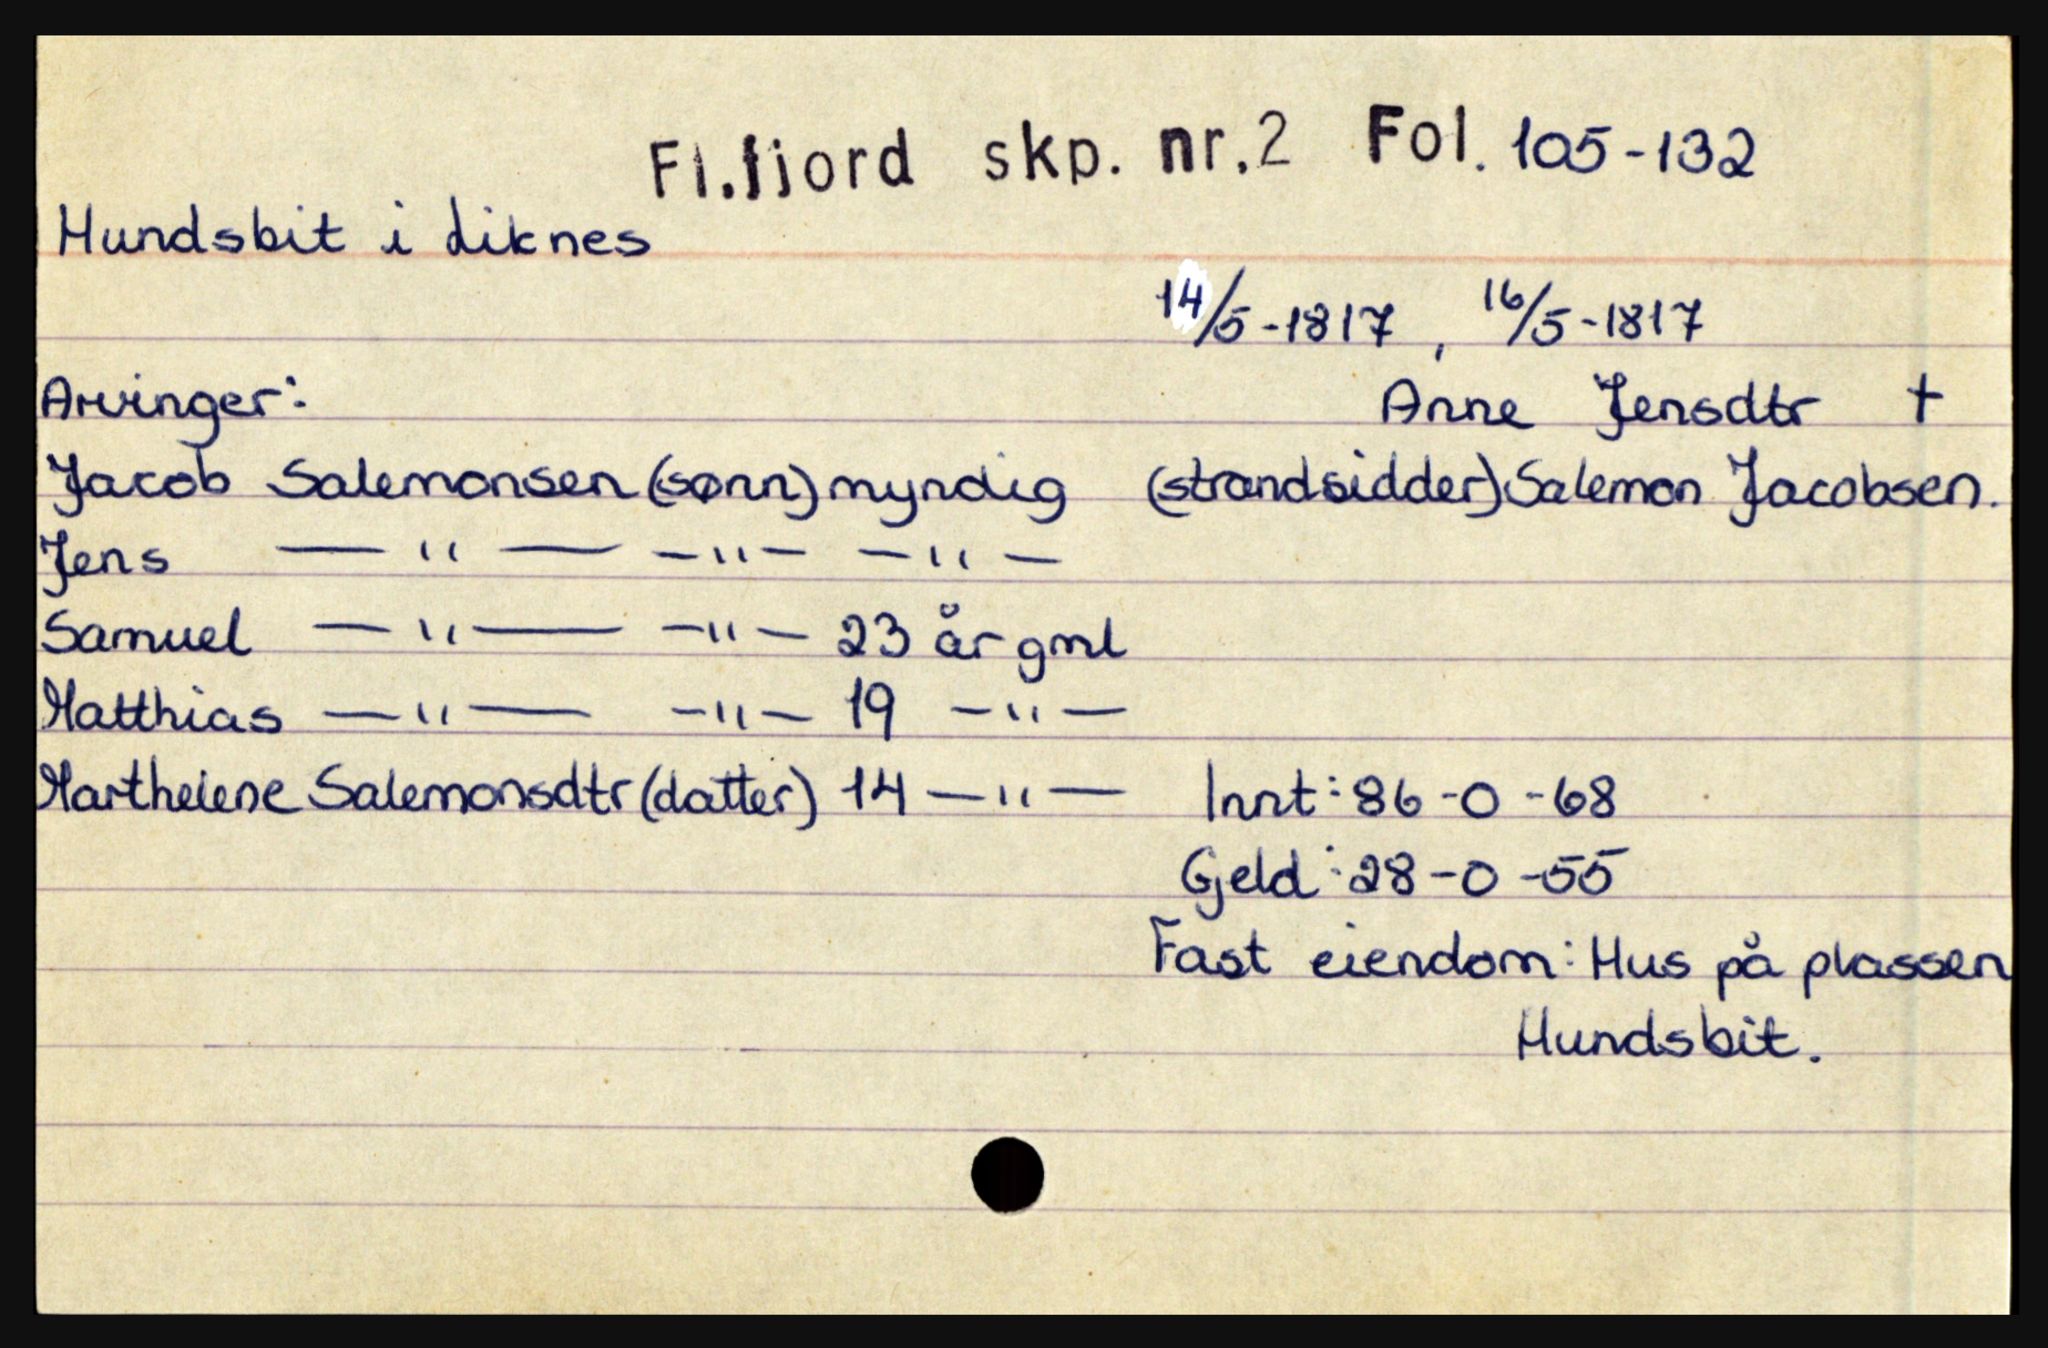 Fl.fjord skp. nr.2 Fol. 105-132
Hundsbit i Liknes
14/5-1817, 16/5-1817
Arvinger: Anne Jensdtr †
Jacob Salemonsen (sønn) myndig (strandsidder) Salemon Jacobsen.
Jens —"— —"— —"—
Samuel —"— —"— 23 år gml
Matthias —"— —"— 19 —"—
Marthelene Salemonsdtr (datter) 14 —"— Innt: 86-0-68
Gjeld: 28-0-55
Fast eiendom: Hus på plassen
Hundsbit.